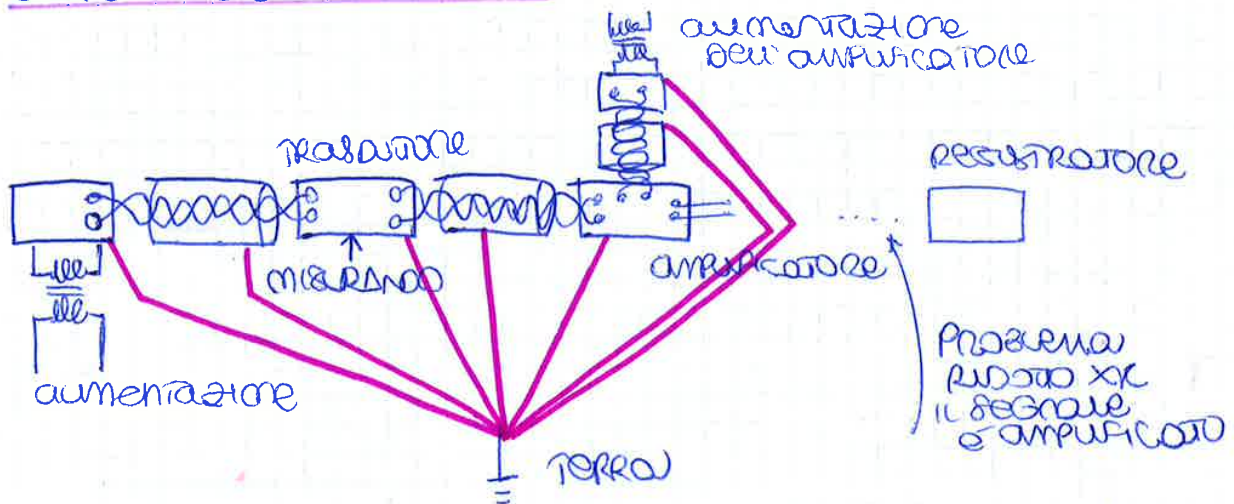 alimentazione
dell'amplificatore
trasduttore
registratore
misurando
amplificatore
alimentazione
problema
ridotto xk
il segnale
è amplificato
terra